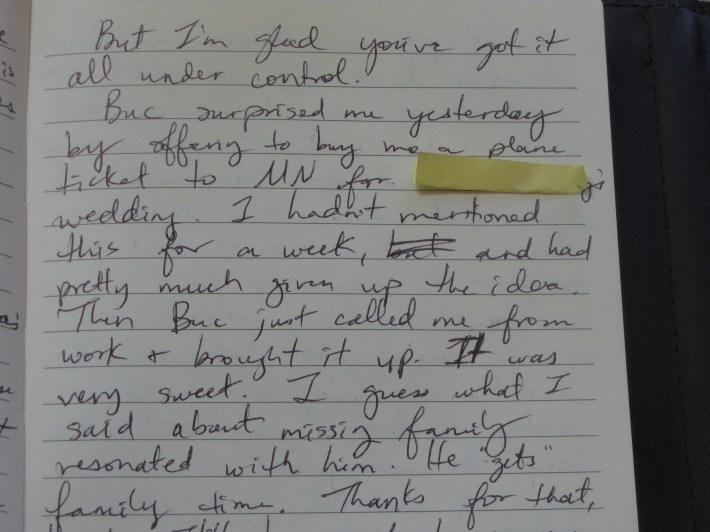 But I'm glad you've got it
all under control.
Buc surprised me yesterday
by offering to buy me a plane
ticket to MN for
wedding. I hadn't mentioned
this for a week, but and had
pretty much given up the idea.
Then Buc just called me from
work & brought it up. It was
very sweet. I guess what I
said about missing family
resonated with him. He "gets"
family time. Thanks for that,